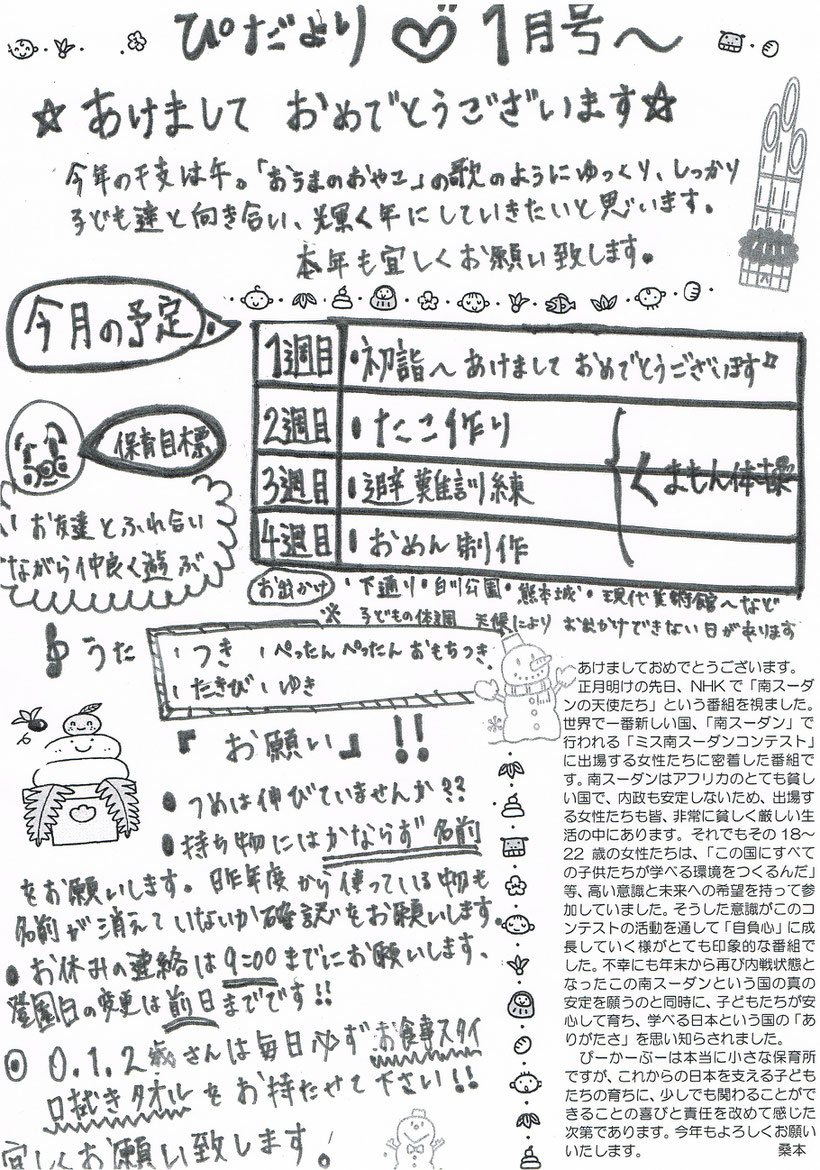 ぴだより ♡ 1月号〜
☆ あけまして おめでとうございます☆
今年の干支は午。「おうまのおやこ」の歌のようにゆっくり、しっかり
子ども達と向き合い、輝く年にしていきたいと思います。
本年も宜しくお願い致します。
今月の予定
1週目 •初詣へ あけまして おめでとうございます♫
2週目 • たこ作り
3週目 •避難訓練
4週目 • おめん制作
くまもん体操
保育目標
お友達とふれ合い
ながら仲良く遊ぶ
お出かけ • 下通り • 白川公園 • 熊本城 • 現代美術館へなど
※ 子どもの体調 天候により お出かけできない日があります
♪ うた
• つき • ぺったん ぺったん おもちつき
• たきび • ゆき
『お願い』!!
• つめは伸びていませんか??
• 持ち物にはかならず 名前
をお願いします。昨年度から使っている物も
名前が消えていないか確認をお願いします。
• お休みの連絡は9:00までにお願いします、
登園日の変更は前日までです!!
◎ 0.1.2歳さんは毎日必ずお食事スタイ
口拭きタオルをお持たせて下さい!!
宜しくお願い致します!
あけましておめでとうございます。
正月明けの先日、NHKで「南スーダ
ンの天使たち」という番組を視ました。
世界で一番新しい国、「南スーダン」で
行われる「ミス南スーダンコンテスト」
に出場する女性たちに密着した番組で
す。南スーダンはアフリカのとても貧し
い国で、内政も安定しないため、出場す
る女性たちも皆、非常に貧しく厳しい生
活の中にあります。それでもその18〜
22歳の女性たちは、「この国にすべて
の子供たちが学べる環境をつくるんだ」
等、高い意識と未来への希望を持って参
加していました。そうした意識がこのコ
ンテストの活動を通して「自負心」に成
長していく様がとても印象的な番組で
した。不幸にも年末から再び内戦状態と
なったこの南スーダンという国の真の
安定を願うのと同時に、子どもたちが安
心して育ち、学べる日本という国の「あ
りがたさ」を思い知らされました。
ぴーかーぶーは本当に小さな保育所
ですが、これからの日本を支える子ども
たちの育ちに、少しでも関わることがで
きることの喜びと責任を改めて感じた
次第であります。今年もよろしくお願い
いたします。 桑本